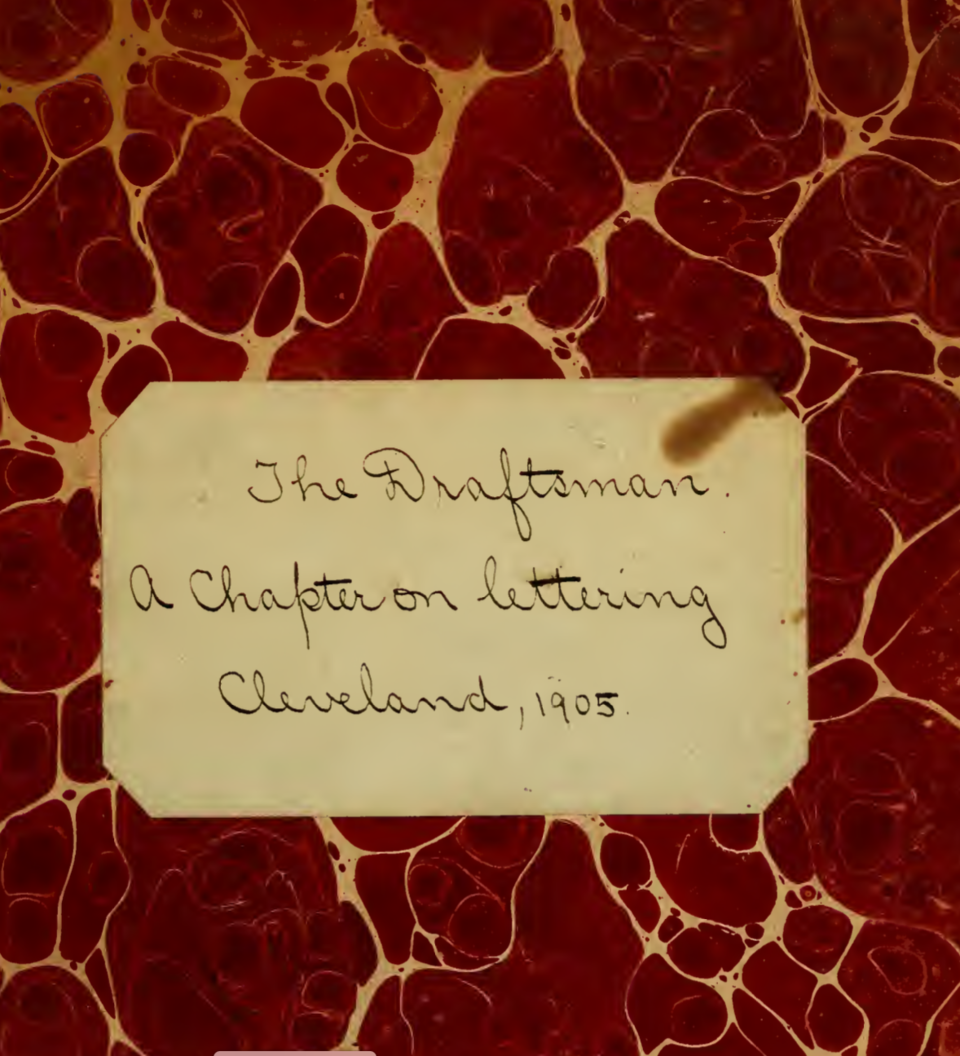 The Draftsman.
A Chapter on lettering
Cleveland, 1905.